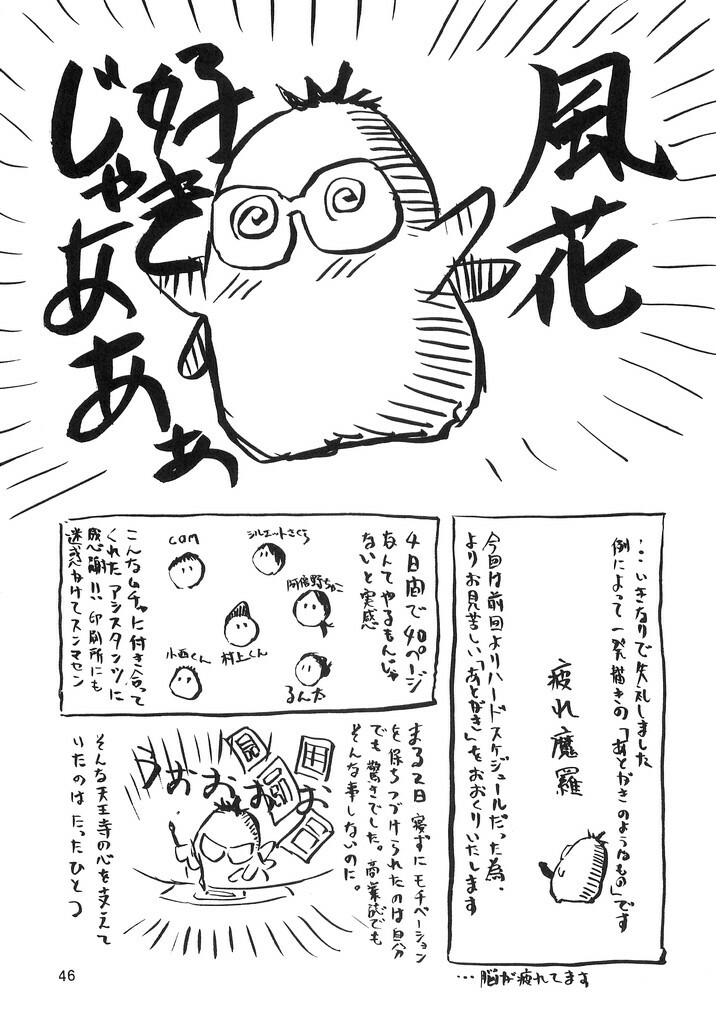 風花
好き
じゃ
あああぁ
…いきなりで失礼しました
例によって一発描きの「あとがきのようなもの」です
疲れ魔羅
今回は前回よりハードスケジュールだった為、
よりお見苦しい「あとがき」をおおくりいたします
…脳が疲れてます
4日間で40ページ
なんてやるもんじゃ
ないと実感
シルエットさくら
com
阿倍野ちゃこ
村上くん
小西くん
るん太
こんなムチャに付き合って
くれたアシスタンツに
感謝!!印刷所にも
迷惑かけてスンマセン
まる2日寝ずにモチベーション
を保ちつづけられたのは自分
でも驚きでした。商業誌でも
そんな事しないのに。
うおおおお
そんな天王寺の心を支えて
いたのはたったひとつ
46